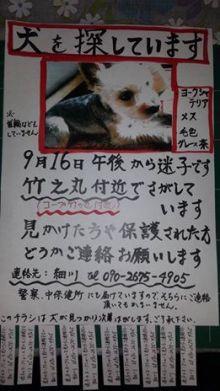 犬を探しています
ヨークシャ
テリア
メス
毛色
グレー&茶
※
首輪はして
いません
9月16日午後から迷子です
竹之丸付近でさがして
います
見かけた方や保護された方
どうかご連絡お願いします
連絡先:細川 tel 090-2675-4905
警察、中保健所にも届けていますので、そちらにご連絡
頂いてもかまいません。
このチラシは犬が見つかり次第はがします。ご了承下さい。